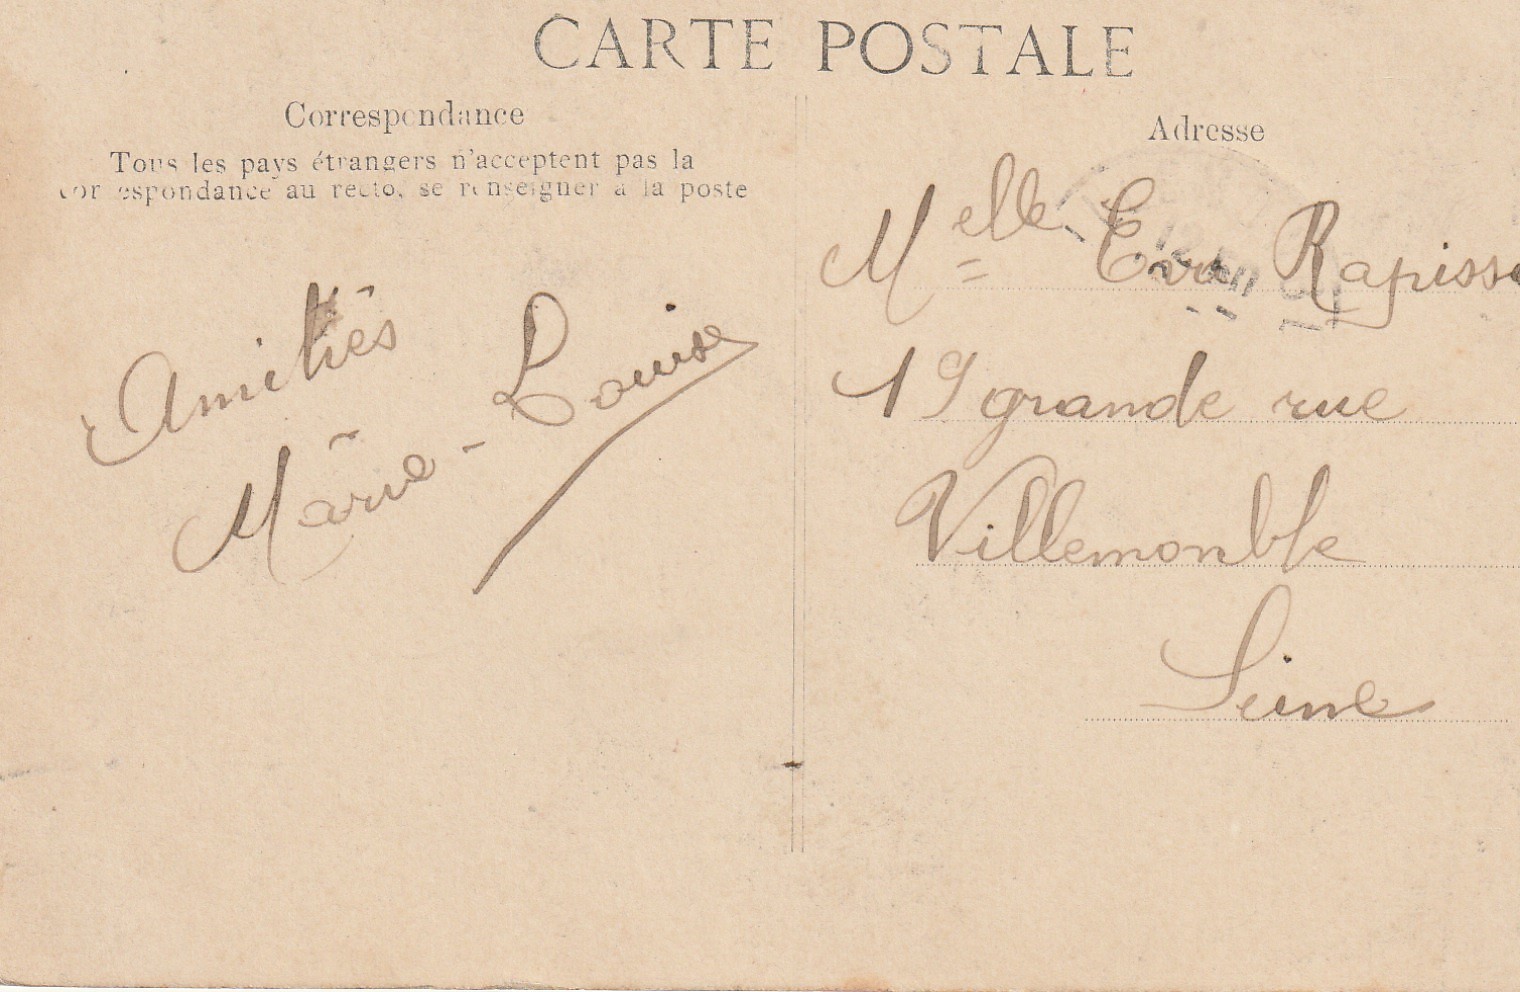 CARTE POSTALE
Correspondance
Tous les pays étrangers n'acceptent pas la
correspondance au recto, se renseigner à la poste
Amitiés
Marie-Louise
Adresse
Melle Eva
19 grande rue
Villemonble
Seine